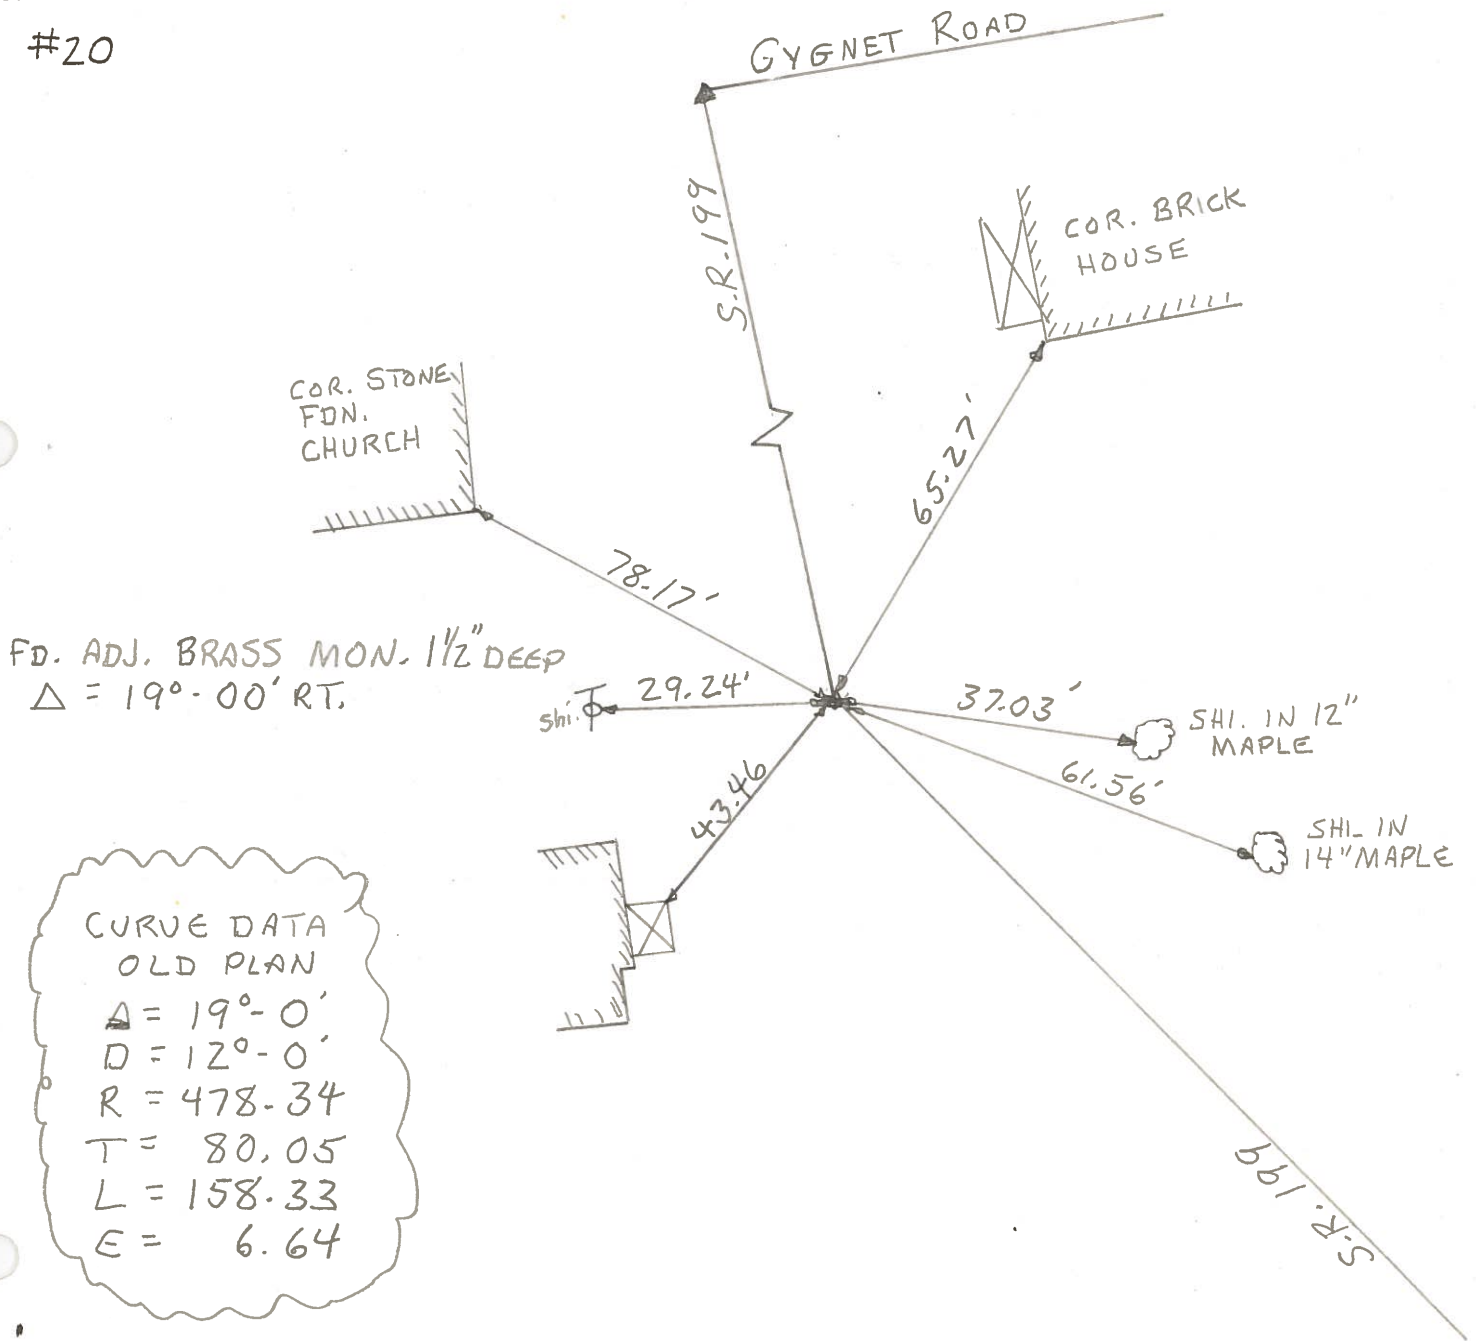 #20
GYGNET ROAD
S.R. 199
COR. BRICK
HOUSE
COR. STONE
FDN.
CHURCH
65.27'
78.17'
FD. ADJ. BRASS MON. 1 1/2" DEEP
Δ = 19°-00' RT.
shi.
29.24'
37.03'
SHI. IN 12"
MAPLE
61.56'
SHI. IN
14" MAPLE
43.46
CURVE DATA
OLD PLAN
Δ = 19°-0'
D = 12°-0'
R = 478.34
T = 80.05
L = 158.33
E = 6.64
S.R. 199